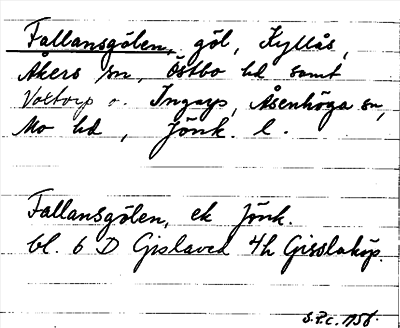 Fallansgölen, göl, Kyllås,
Åkers sn, Östbo hd samt
Voxtorp o. Ingarp, Åsenhöga sn,
Mo hd, Jönk. l.
Fallansgölen, ek Jönk.
bl. 6 D Gislaved 4h Gisslaköp.
S.P.c. 1958.